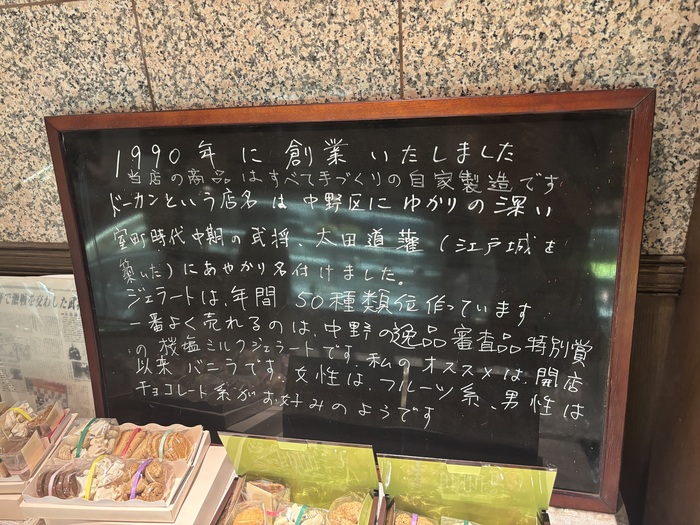 1990年に創業いたしました
当店の商品はすべて手づくりの自家製造です
ドーカンという店名は中野区にゆかりの深い
室町時代中期の武将、太田道灌(江戸城を
築いた)にあやかり名付けました。
ジェラートは、年間50種類位作っています
一番よく売れるのは、中野の逸品審査品特別賞
の機塩ミルクジェラートです。私のオススメは、開店
以来バニラです。女性は、フルーツ系、男性は
チョコレート系がお好みのようです